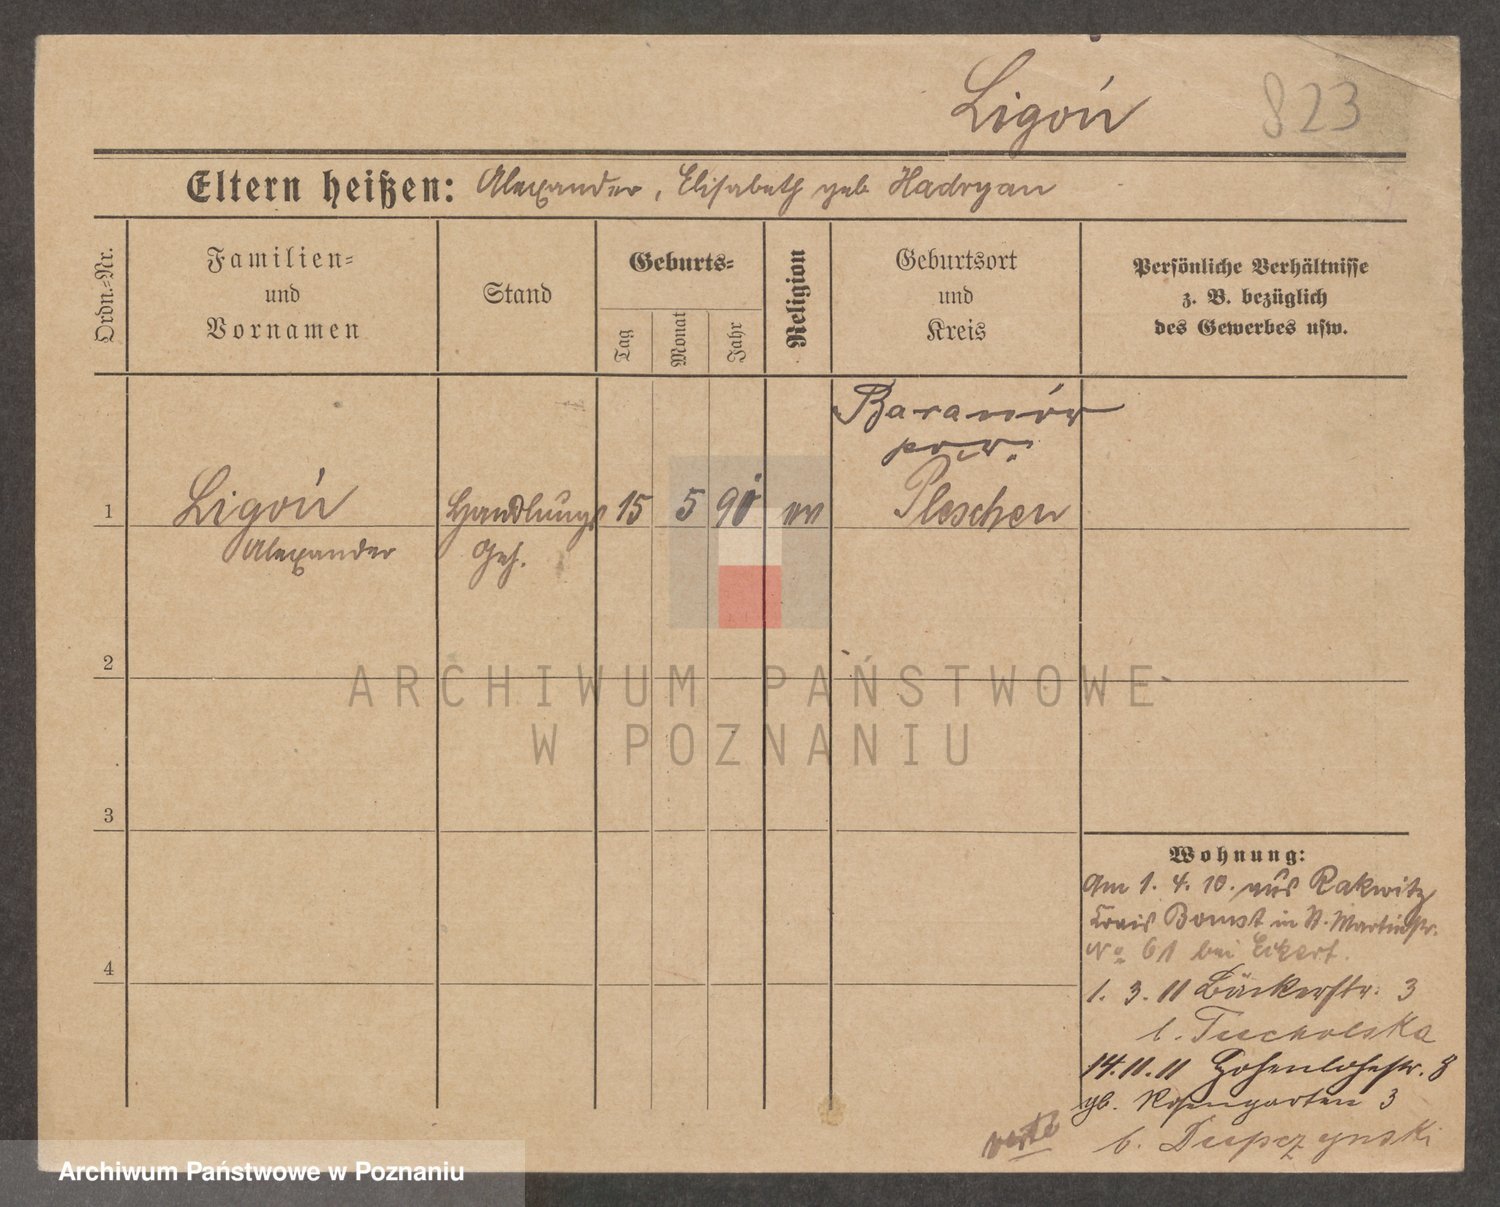 Ligoń 823
Eltern heißen: Alexander, Elisabeth geb Hadryan
Ordn.-Nr.
Familien-
und
Vornamen
Stand
Geburts-
Tag
Monat
Jahr
Religion
Geburtsort
und
Kreis
Persönliche Verhältnisse
z. B. bezüglich
des Gewerbes usw.
Baranów
pow.
1 Ligoń Handlungs 15 5 90 Pleschen
Alexander Geh.
2
3
4
Wohnung:
Am 1. 4. 10. aus Rakwitz
Kreis Bomst in St. Martinstr.
No 61 bei Eckert.
1. 3. 11 Bäckerstr. 3
b. Tucholska
14.11.11 Hohenlohestr. 8
gb. Rosengarten 3
b. Dupczynski
verte
ARCHIWUM PAŃSTWOWE
W POZNANIU
Archiwum Państwowe w Poznaniu